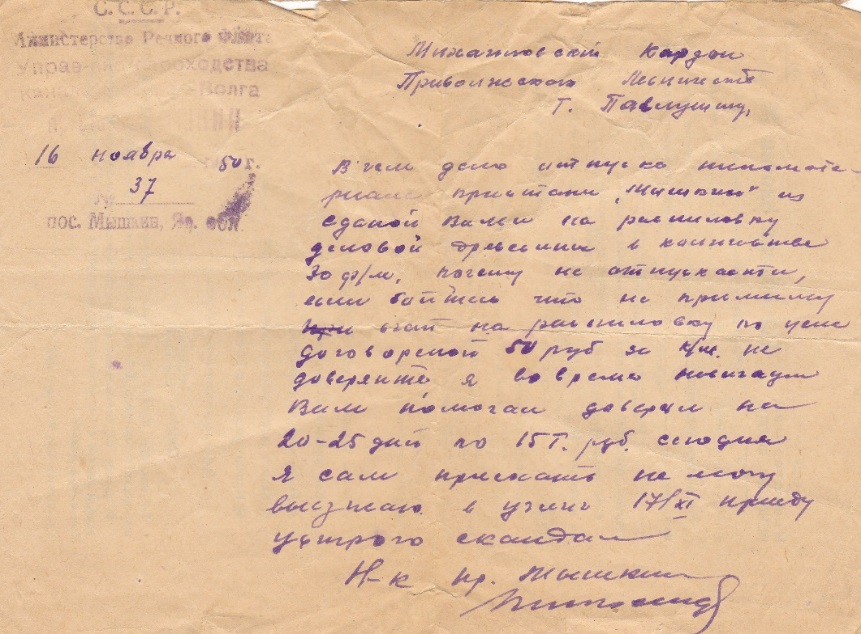 С.С.С.Р.
Министерство Речного Флота
Управление пароходства
Волга
16 ноября 50 г.
№ 37
пос. Мышкин, Яр. обл.
Михайловский Кордон
Приволжского Лесничества
Т. Павлушину,
В чем дело отпуска пиломате-
риала пристани "Мышкин" из
сданой Вами на распиловку
деловой древесины в количестве
30 ф/м, почему не отпускаете,
если боитесь что не примиму
счет на распиловку по цене
договорсной 50 руб за к/м. не
доверяите я во время навигации
Вам помогал доверял на
20-25 дней по 15 т. руб. сегодня
я сам приехать не могу
выезжаю в углич 17/XI приеду
устрою скандал
Н-к пр. Мышкин